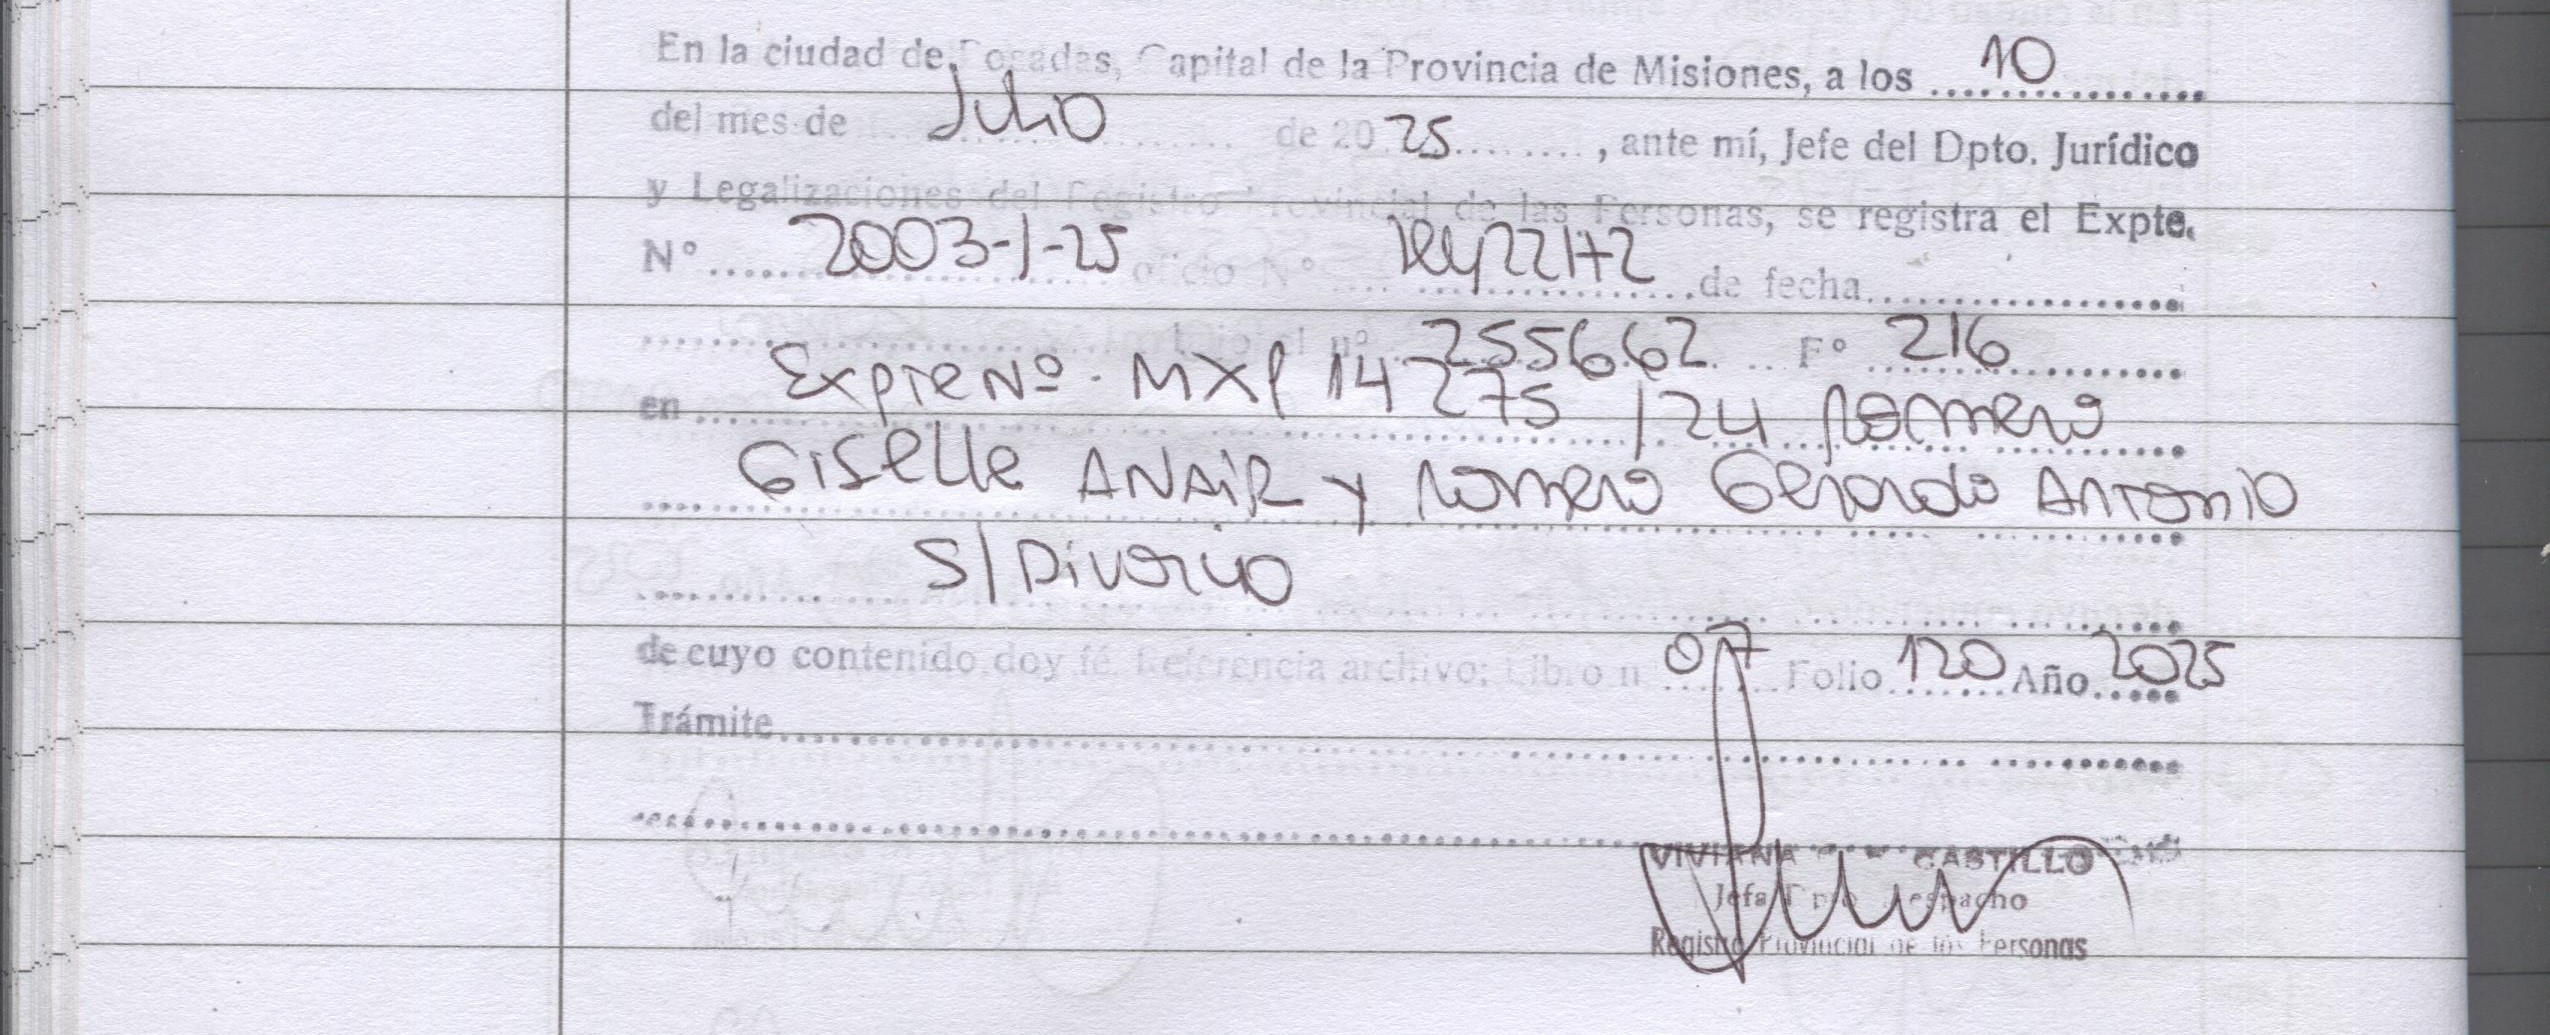 En la ciudad de Posadas, Capital de la Provincia de Misiones, a los 10
del mes de Julio de 20 25, ante mí, Jefe del Dpto. Jurídico
y Legalizaciones del Registro Provincial de las Personas, se registra el Expte.
Nº 2003-1-25 oficio Nº Ley 22172 de fecha
nº 255662 Fº 216
en Expte Nº. MXP 14275/24 Romero
Giselle ANAIR y Romero Gerardo Antonio
S/Divorcio
de cuyo contenido doy fé. Referencia archivo: Libro n 07 Folio 120 Año 2025
Trámite
VIVIANA CASTILLO
Jefa Dpto Despacho
Registro Provincial de las Personas